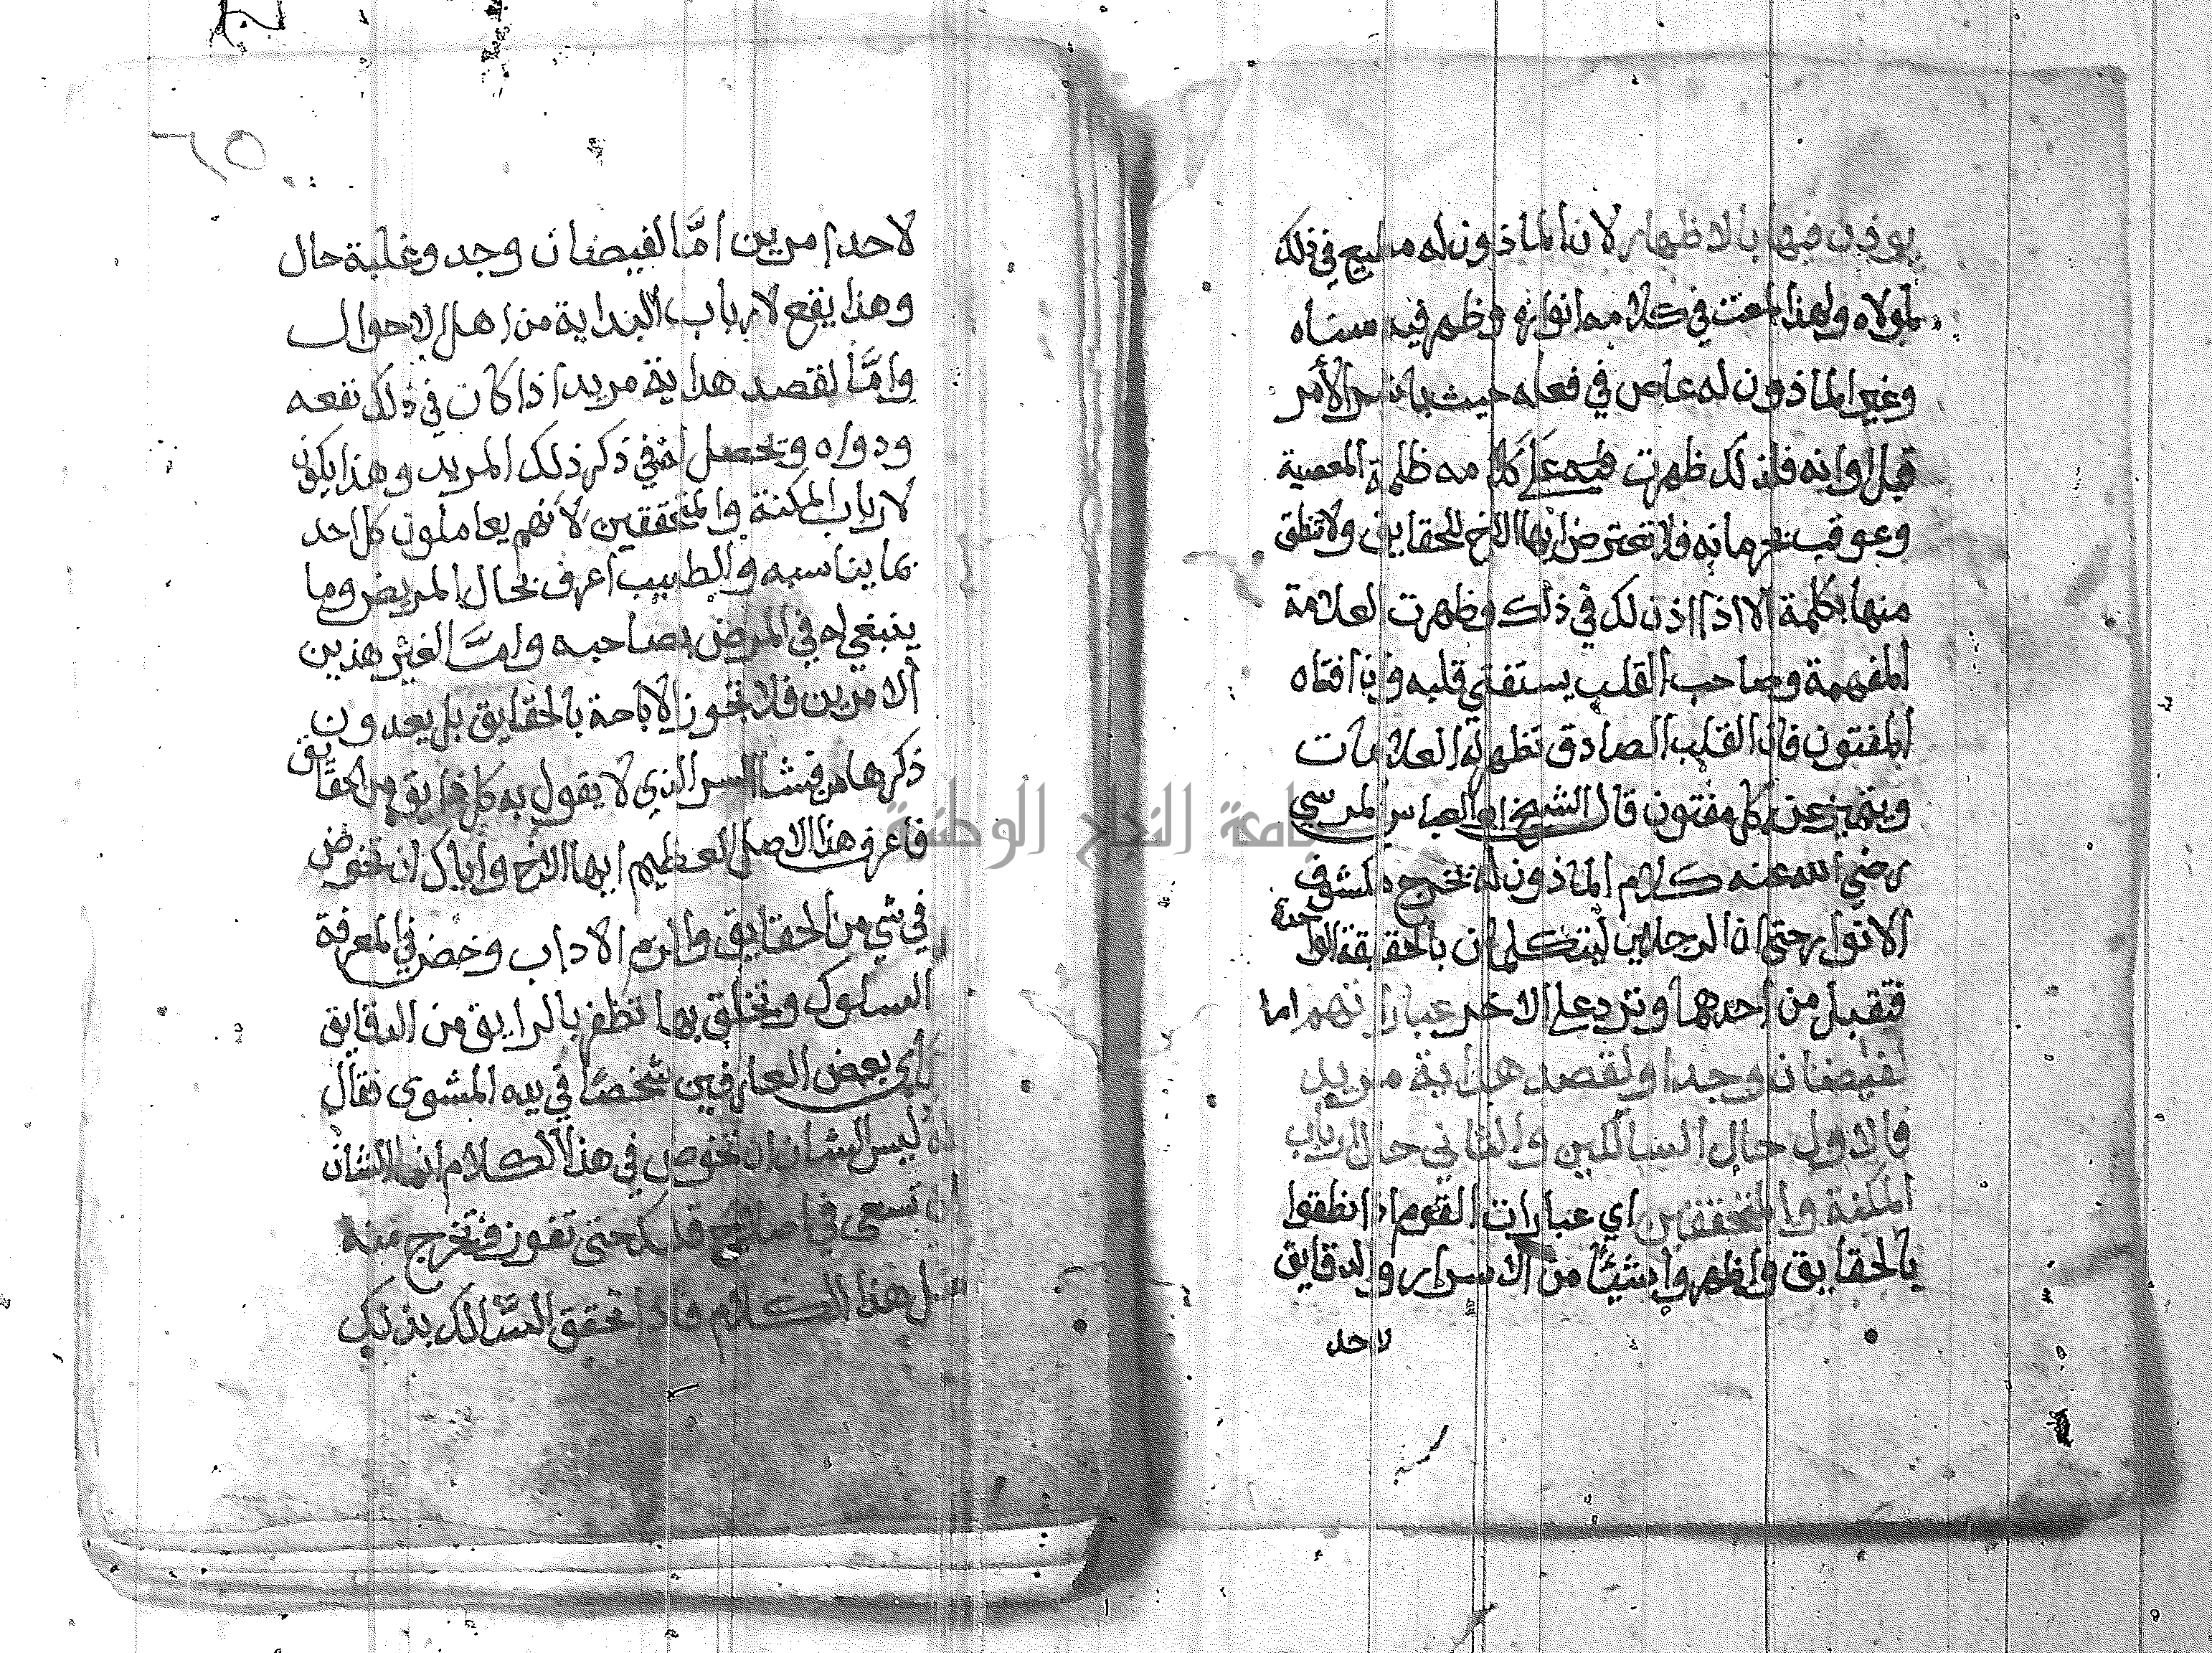 يوذن فيها بالاظهار لان الماذون له مطيع في ذلك
لمولاه ولهذا لمعت في كلامه انواره وظهر فيه سناه
وغير الماذون له عاص في فعله حيث باشر الأمر
قبل اوانه فلذلك ظهرت فيه على كلامه ظلمة المعصية
وعوقب بحرمانه فلا تعترض ايها الاخ للحقايق ولا تنطق
منها بكلمة الا اذا اذن لك في ذلك وظهرت العلامة
المفهمة وصاحب القلب يستفتي قلبه وان افتاه
المفتون فان القلب الصادق تظهر له العلامات
ويتميز عن كل مفتون قال الشيخ ابو العباس المرسي
رضي الله عنه كلام الماذون له يخرج
الانوار حتى ان الرجلين ليتكلمان بالحقيقة الواحدة
فتقبل من احدهما وترد على الاخر عباراتهم اما
لفيضان وجد او لقصد هداية مريد
فالاول حال السالكين والثاني حال ارباب
المكنة والمتحققين اي عبارات القوم اذا نطقوا
بالحقايق واظهروا شيئا من الاسرار والدقايق
لاحد
٦٥
لاحد امرين امَّا لفيضان وجد وغلبة حال
وهذا يقع لارباب البداية من اهل الاحوال
وامَّا لقصد هداية مريد اذا كان في ذلك نفعه
ودواه وتحصل في ذكر ذلك المريد وهذا يكون
لارباب المكنة والمتحققين لأنهم يعاملون كل احد
بما يناسبه والطبيب اعرف بحال المريض وما
ينبغي له في المرض بصاحبه وامَّا لغير هذين
الامرين فلا تجوز الاباحة بالحقايق بل يعدون
ذكرها من فشا السر الذي لا يقول به كل من الحقايق
فاعرف هذا الاصل العظيم ايها الاخ واياك ان تخوض
في شي من الحقايق والزم الاداب وخض في المعرفة
السلوك وتخلق بها تظفر بالرايق من الدقايق
راي بعض العارفين شخصًا في يده المشوى فقال
له ليس الشان ان تخوض في هذا الكلام انما الشان
ان تسعى في صلاح قلبك حتى تفوز فتخرج منه
مثل هذا الكلام فاذا تحقق السَّالك بذلك
جامعة النجاح الوطنية